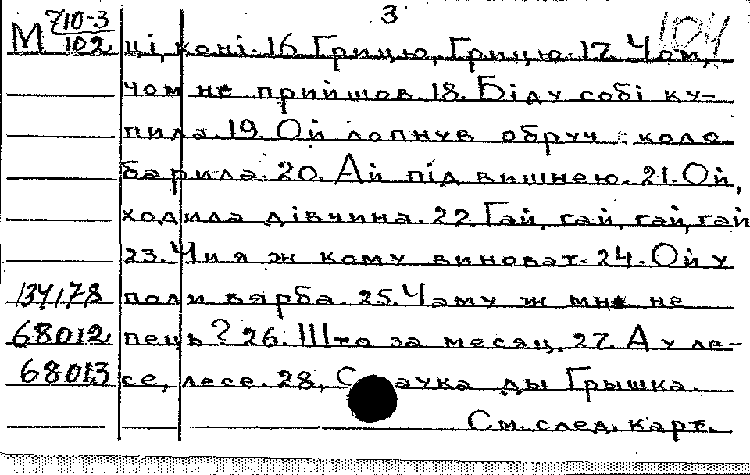 3
М 710-3/102 ці, коні. 16. Грицю, Грицю. 17. Чом, 104
чом не прийшов. 18. Біду собі ку-
пила. 19. Ой лопнув обруч коло
барила. 20. Ай під вишнею. 21. Ой,
ходила дівчина. 22. Гай, гай, гай, гай
23. Чи я ж кому виноват. 24. Ой у
134178 поли вярба. 25. Чаму ж мне не
68012 пець? 26. Што за месяц. 27. А у ле-
68013 се, лесе. 28. ды Грышка.
См. след. карт.